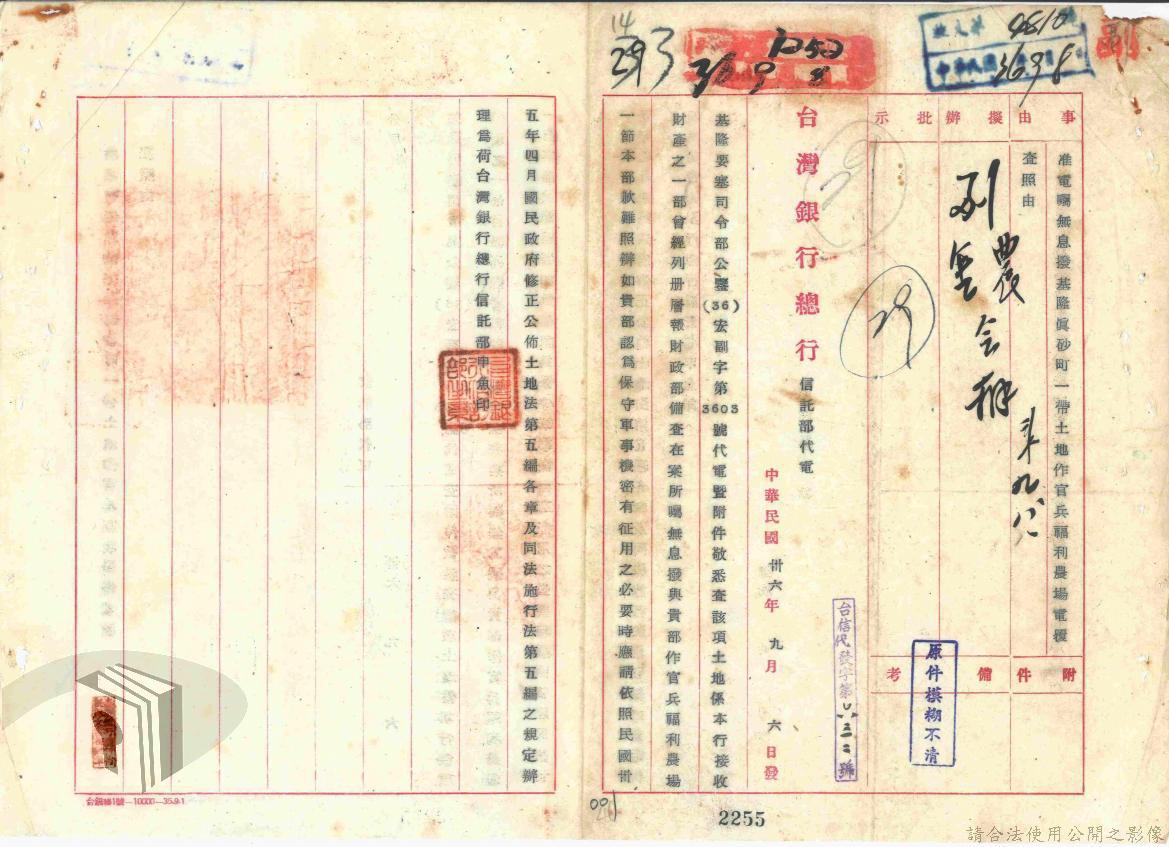 副
收文第 4810
中華民國 36.9.8
1252
36 9 8
14
事由
擬辦
批示
准電囑無息撥基隆眞砂町一帶土地作官兵福利農場電覆
查照由
九八
29
附件
備考
原件模糊不清
台灣銀行總行信託部代電
中華民國卅六年九月六日發
基隆要塞司令部公鑒(36)宏副字第3603號代電暨附件敬悉查該項土地係本行接收
財產之一部曾經列册層報財政部備查在案所囑無息撥與貴部作官兵福利農場
一節本部歉難照辦如貴部認爲保守軍事機密有征用之必要時應請依照民國卅
五年四月國民政府修正公佈土地法第五編各章及同法施行法第五編之規定辦
理爲荷台灣銀行總行信託部申魚印
2255
請合法使用公開之影像